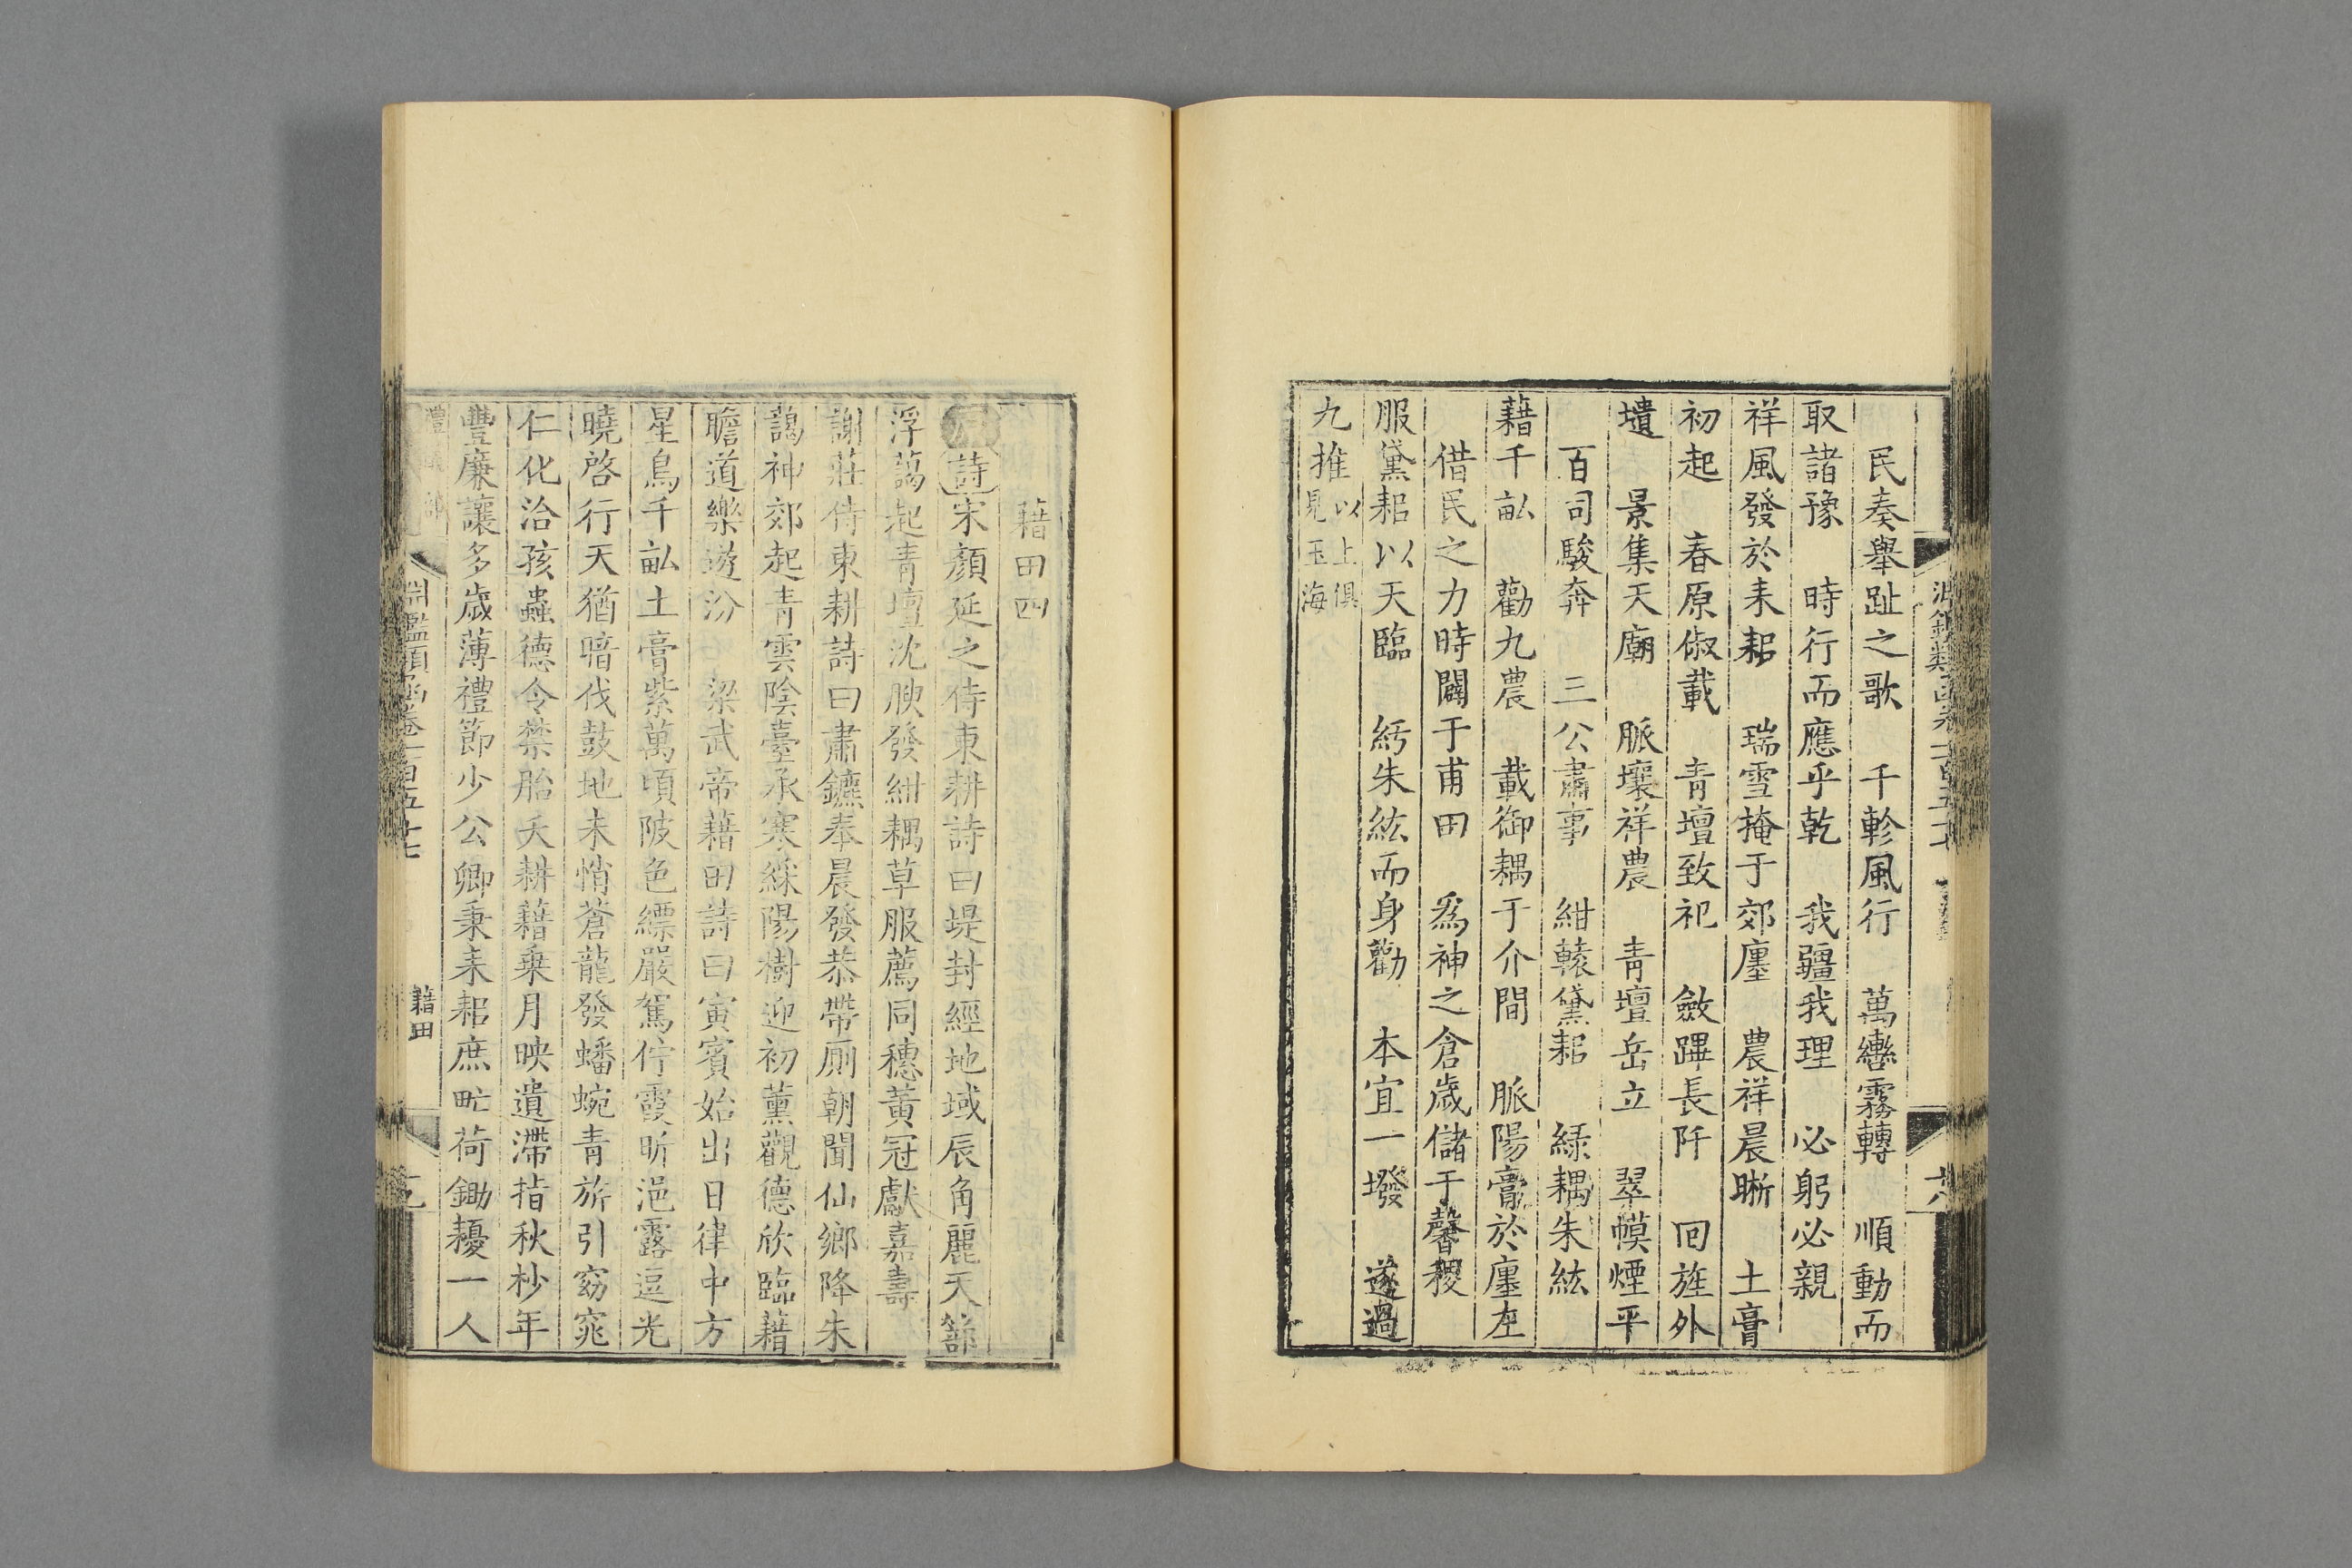 民奏舉趾之歌　千軫風行　萬轡霧轉　順動而
取諸豫　時行而應乎乾　我疆我理　必躬必親
祥風發於耒耜　瑞雪掩于郊廛　農祥晨晰　土膏
初起　春原俶載　青壇致祀　斂蹕長阡　回旌外
壝　景集天廟　脈壤祥農　青壇岳立　翠幙煙平
百司駿奔　三公肅事　紺轅黛耜　緑耦朱紘
藉千畝　勸九農　載御耦于介間　脈陽膏於廛左
借民之力時闢于甫田　爲神之倉歲儲于馨稷
服黛耜以天臨　紆朱紘而身勸　本宜一墢　遂過
九推以上俱見玉海
藉田四
詩宋顏延之侍東耕詩曰堤封經地域辰角麗天部
浮藹起青壇沈腴發紺耦草服薦同穗黃冠獻嘉壽
謝莊侍東耕詩曰肅鑣奉晨發恭帶廁朝聞仙鄉降朱
藹神郊起青雲陰臺承寒綵陽樹迎初薰觀德欣臨藉
瞻道樂遊汾　梁武帝藉田詩曰寅賓始出日律中方
星鳥千畝土膏紫萬頃陂色縹嚴駕佇霞昕浥露逗光
曉啓行天猶暗伐鼓地未悄蒼龍發蟠蜿青旂引窈窕
仁化洽孩蟲德令禁胎夭耕藉乗月映遺滯指秋杪年
豐廉讓多歲薄禮節少公卿秉耒耜庶甿荷鋤耰一人
淵鑑類函卷一百五十七
藉田